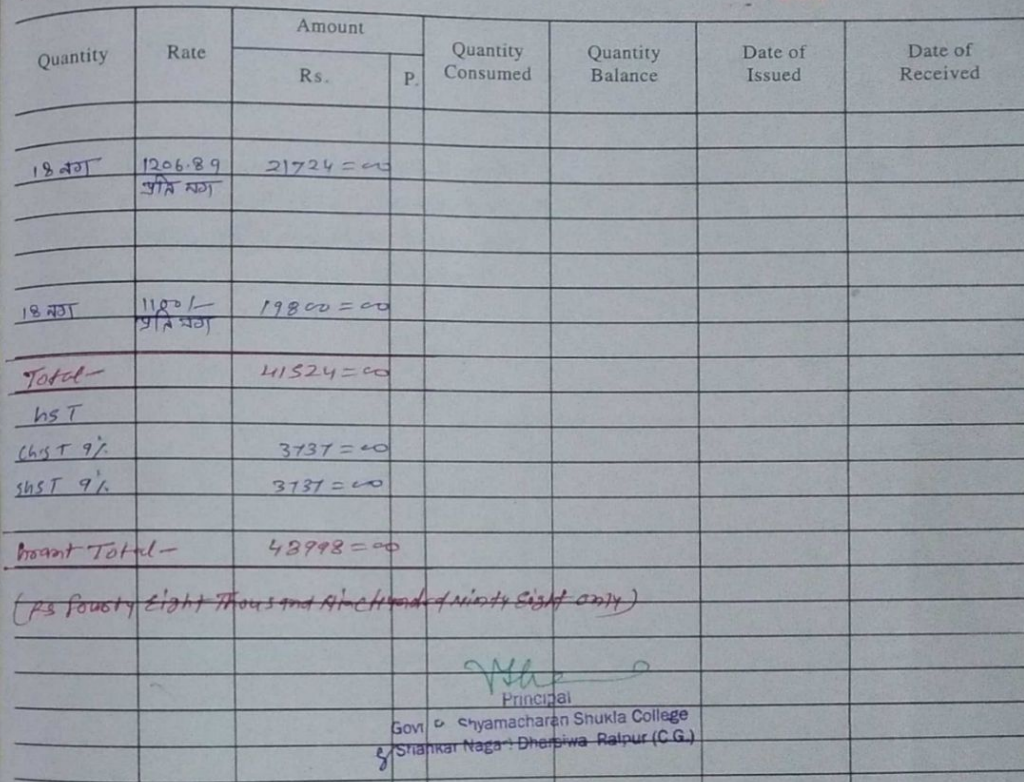 Amount
Quantity Rate Rs. P. Quantity Consumed Quantity Balance Date of Issued Date of Received
18 नग 1206.89 21724=00
प्रति नग
18 नग 1100/- 19800=00
प्रति नग
Total- 41524=00
GST
CGST 9% 3737=00
SGST 9% 3737=00
Grant Total- 48998=00
(Rs fourty Eight Thousand Nine Hundred Ninty Eight only)
Principal
Govt Shyamacharan Shukla College
Shankar Nagar Dharsiwa Raipur (C.G.)